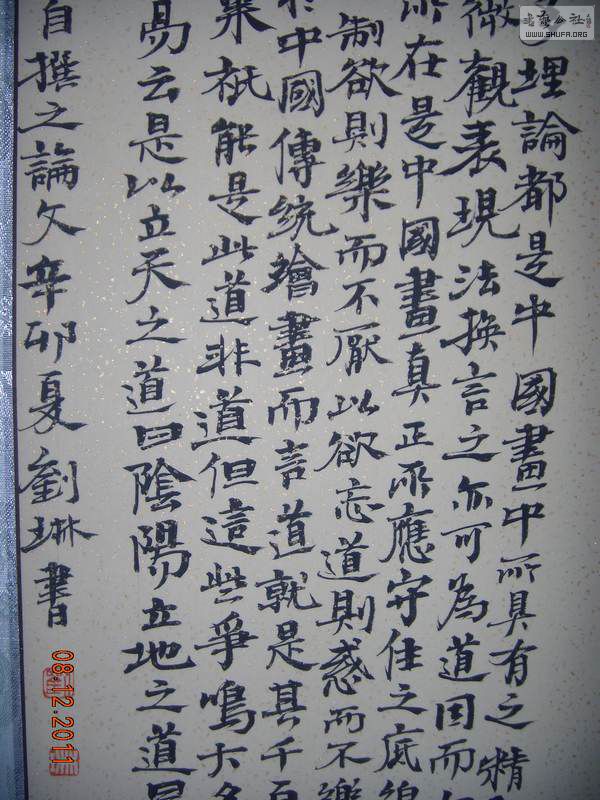 理論都是中國畫中所具有之精
微觀表現法換言之亦可為道因而
所在是中國畫真正所應守住之底線
制欲則樂而不厭以欲忘道則惑而不樂
於中國傳統繪畫而言道就是其千百
來祇能是此道非道但這些爭鳴大多
易云是以立天之道曰陰陽立地之道曰
自撰之論文辛卯夏劉琳書
WWW.SHUFA.ORG
08.12.2011